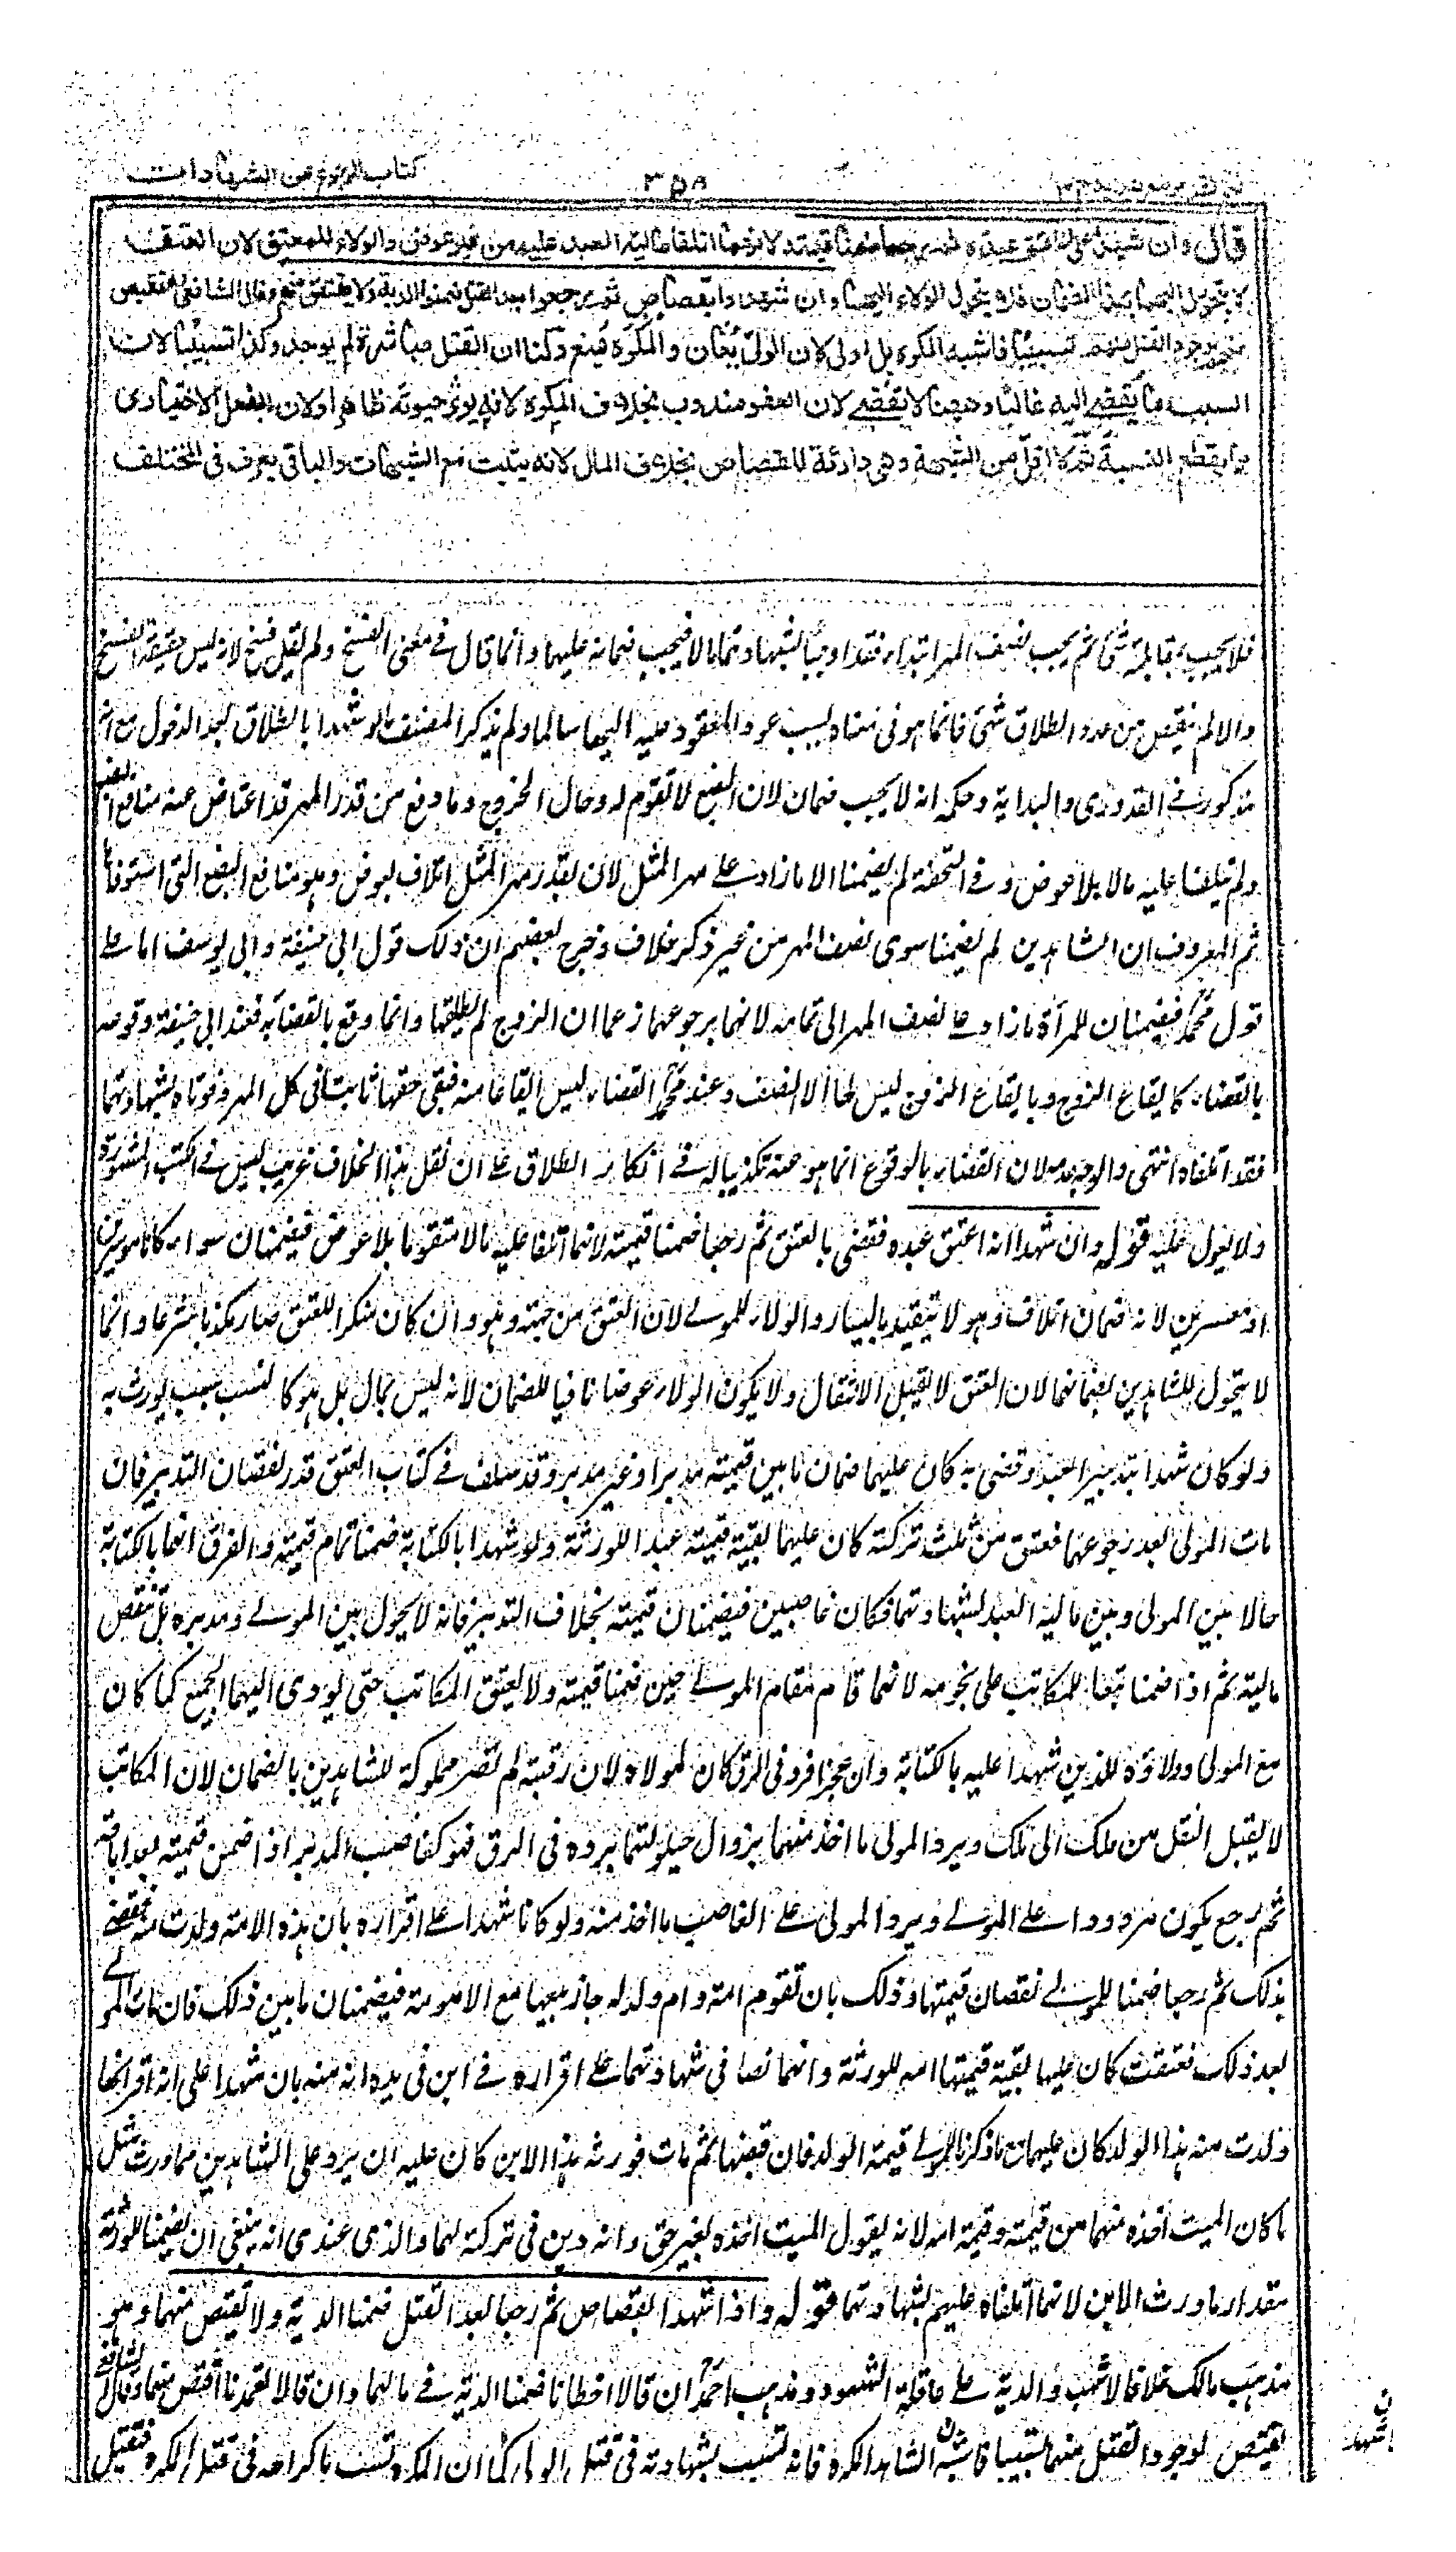 كتاب الرجوع عن الشهادات
٣٥٨
قال وان شهدا على انه اعتق عبده ثم رجعا ضمنا قيمته لانهما اتلفا مالية العبد عليه من غير عوض والولاء للمعتق لان العتق
لا يتحول اليهما بهذا الضمان فلا يتحول الولاء اليهما وان شهدوا بقصاص ثم رجعوا بعد القتل ضمنوا الدية ولا يقتص منهم وقال الشافعي يقتص
منهم لوجود القتل منهم تسبيبا فاشبه المكره بل اولى لان الولي يعان والمكره يمنع ولنا ان القتل مباشرة لم يوجد وكذا تسبيبا لان
السبب ما يفضي اليه غالبا وههنا لا يفضي لان العفو مندوب بخلاف المكره لانه يؤثر حيوته ظاهرا ولان الفعل الاختياري
مما يقطع النسبة ثم لا اقل من الشبهة وهي دارئة للقصاص بخلاف المال لانه يثبت مع الشبهات والباقي يعرف في المختلف
فلا يجب بمقابلته شئ ثم يجب نصف المهر ابتداء فقد اوجبا بشهادتهما مالا فيجب ضمانه عليهما وانما قال في معنى الفسخ ولم يقل فسخ لانه ليس حقيقة الفسخ
والا لم ينقص من عدد الطلاق شئ فانما هو في معناه بسبب عود المعقود عليه اليها سالما ولم يذكر المصنف ما لو شهدا بالطلاق بعد الدخول مع انه
مذكور في القدوري والبداية وحكمه انه لا يجب ضمان لان البضع لا تقوم له حال الخروج وما دفع من قدر المهر قد اعتاض عنه منافع البضع
ولم يتلفا عليه مالا بلا عوض وفي التحفة لم يضمنا الا ما زاد على مهر المثل لان بقدر مهر المثل اتلاف بعوض وهو منافع البضع التي استوفاها
ثم المعروف ان الشاهدين لم يضمنا سوى نصف المهر من غير ذكر خلاف وخرج بعضهم ان ذلك قول ابي حنيفة وابي يوسف اما على
قول محمد فيضمنان للمرأة ما زاد على نصف المهر الى تمامه لانهما برجوعهما زعما ان الزوج لم يطلقها وانما وقع بالقضاء به فعند ابي حنيفة وقوعه
بالقضاء كايقاع الزوج وبايقاع الزوج ليس لها الا النصف وعند محمد القضاء ليس ايقاعا منه فبقي حقها ثابتا في كل المهر وفوتاه بشهادتهما
فقد اتلفاه انتهى والوجه عدمه لان القضاء بالوقوع انما هو عنه تكذيبا له في انكار الطلاق على ان نقل هذا الخلاف غريب ليس في الكتب المشهورة
ولا يعول عليه قوله وان شهدا انه اعتق عبده فقضى بالعتق ثم رجعا ضمنا قيمته لانهما اتلفا عليه مالا متقوما بلا عوض فيضمنان سواء كانا موسرين
او معسرين لانه ضمان اتلاف وهو لا يتقيد باليسار والولاء للمولى لان العتق من جهته وهو وان كان منكرا للعتق صار مكذبا شرعا وانما
لا يتحول للشاهدين بضمانهما لان العتق لا يقبل الانتقال ولا يكون الولاء عوضا نافيا للضمان لانه ليس بمال بل هو كالنسب سبب يورث به
ولو كان شهدا بتدبير العبد وقضى به كان عليهما ضمان ما بين قيمته مدبرا وغير مدبر وقد سلف في كتاب العتق قدر نقصان التدبير فان
مات المولى بعد رجوعهما فعتق من ثلث تركته كان عليهما بقية قيمته عبدا للورثة ولو شهدا بالكتابة ضمنا تمام قيمته والفرق انهما بالكتابة
حالا بين المولى وبين مالية العبد بشهادتهما فكان غاصبين فيضمنان قيمته بخلاف التدبير فانه لا يحول بين المولى ومدبره بل تنقص
ماليته ثم اذا ضمنا تبعا للمكاتب على نجومه لانهما قاما مقام المولى حين ضمنا قيمته ولا يعتق المكاتب حتى يؤدى اليهما الجميع كما كان
مع المولى وولاؤه للذين شهدا عليه بالكتابة وان عجز فرد في الرق كان لمولاه لان رقبته لم تصر مملوكة للشاهدين بالضمان لان المكاتب
لا يقبل النقل من ملك الى ملك ويرد المولى ما اخذ منهما بزوال حيلولتهما برده في الرق فهو كغاصب المدبر اذا ضمن قيمته بعد اباقه
ثم رجع يكون مردودا على المولى ويرد المولى على الغاصب ما اخذ منه ولو كانا شهدا على اقراره بان هذه الامة ولدت منه فقضى
بذلك ثم رجعا ضمنا للمولى نقصان قيمتها وذلك بان تقوم امة وام ولد لو جاز بيعها مع الامومة فيضمنان ما بين ذلك فان مات المولى
بعد ذلك فعتقت كان عليهما بقية قيمتها امة للورثة وانهما نصا في شهادتهما على اقراره في ابن في يده انه منه بان شهدا على انه اقر انها
ولدت منه هذا الولد كان عليهما مع ما ذكرنا للمولى قيمة الولد فان قبضها ثم مات فورثه هذا الابن كان عليه ان يرد على الشاهدين مما ورث مثل
ما كان الميت اخذه منهما من قيمته وقيمة امه لانه يقول الميت اخذه بغير حق وانه دين في تركته لهما والذي عندي انه ينبغي ان يضمنا للورثة
مقدار ما ورث الابن لانهما اتلفاه عليهم بشهادتهما قوله واذا شهدا بقصاص ثم رجعا بعد القتل ضمنا الدية ولا يقتص منهما وهو
مذهب مالك خلافا لاشهب والدية على عاقلة الشهود ومذهب احمد ان قالا اخطأنا ضمنا الدية في مالهما وان قالا تعمدنا اقتص منهما وقال الشافعي
يقتص لوجود القتل منهما تسبيبا فاشبه الشاهد المكره فانه تسبب بشهادته في قتل الولي كما ان المكره تسبب باكراهه في قتل المكره فيقتل